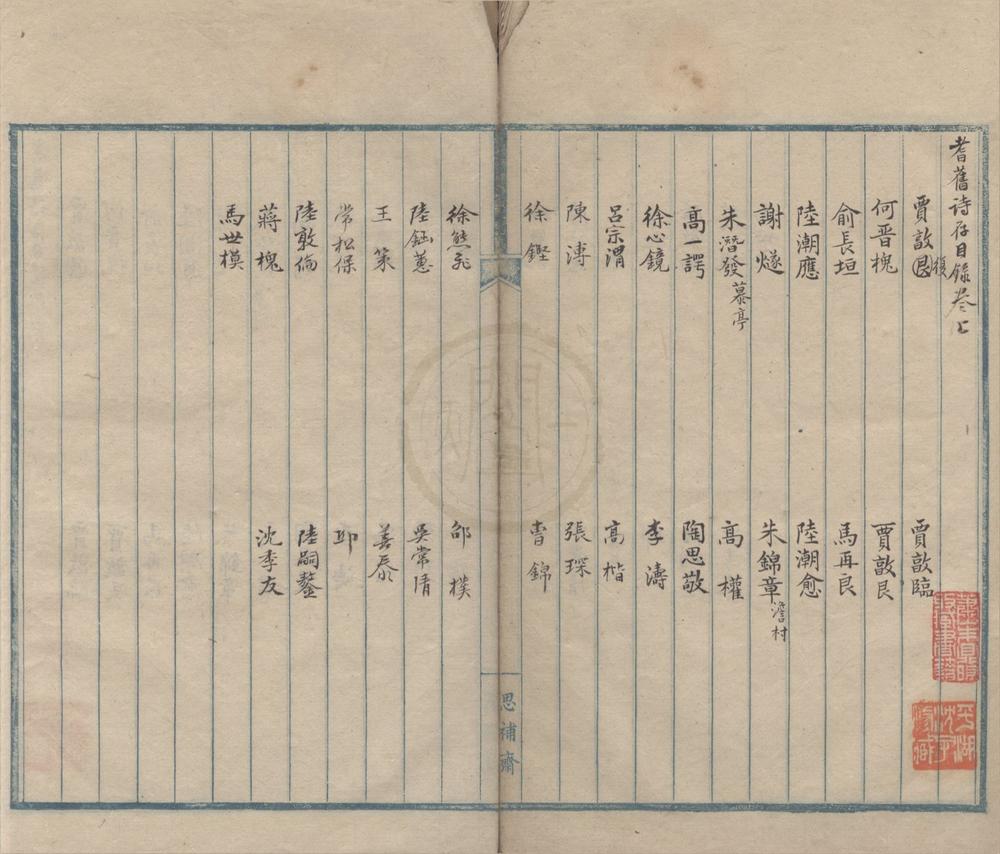 耆舊诗存目錄卷七
賈敦艮復
賈敦臨
何晋槐
賈敦艮
俞長垣
馬再良
陸潮應
陸潮愈
謝燧
朱錦章澹村
朱潛發慕亭
高權
高一諤
陶思敬
徐心鏡
李濤
呂宗渭
高楷
陳溥
張琛
徐鏗
曹錦
思補齋
徐熊飛
邵樸
陸鈺蕙
吳常淯
王策
姜辰
常松保
邛
陸敦倫
陸嗣鏊
蔣槐
沈季友
馬世模
平湖